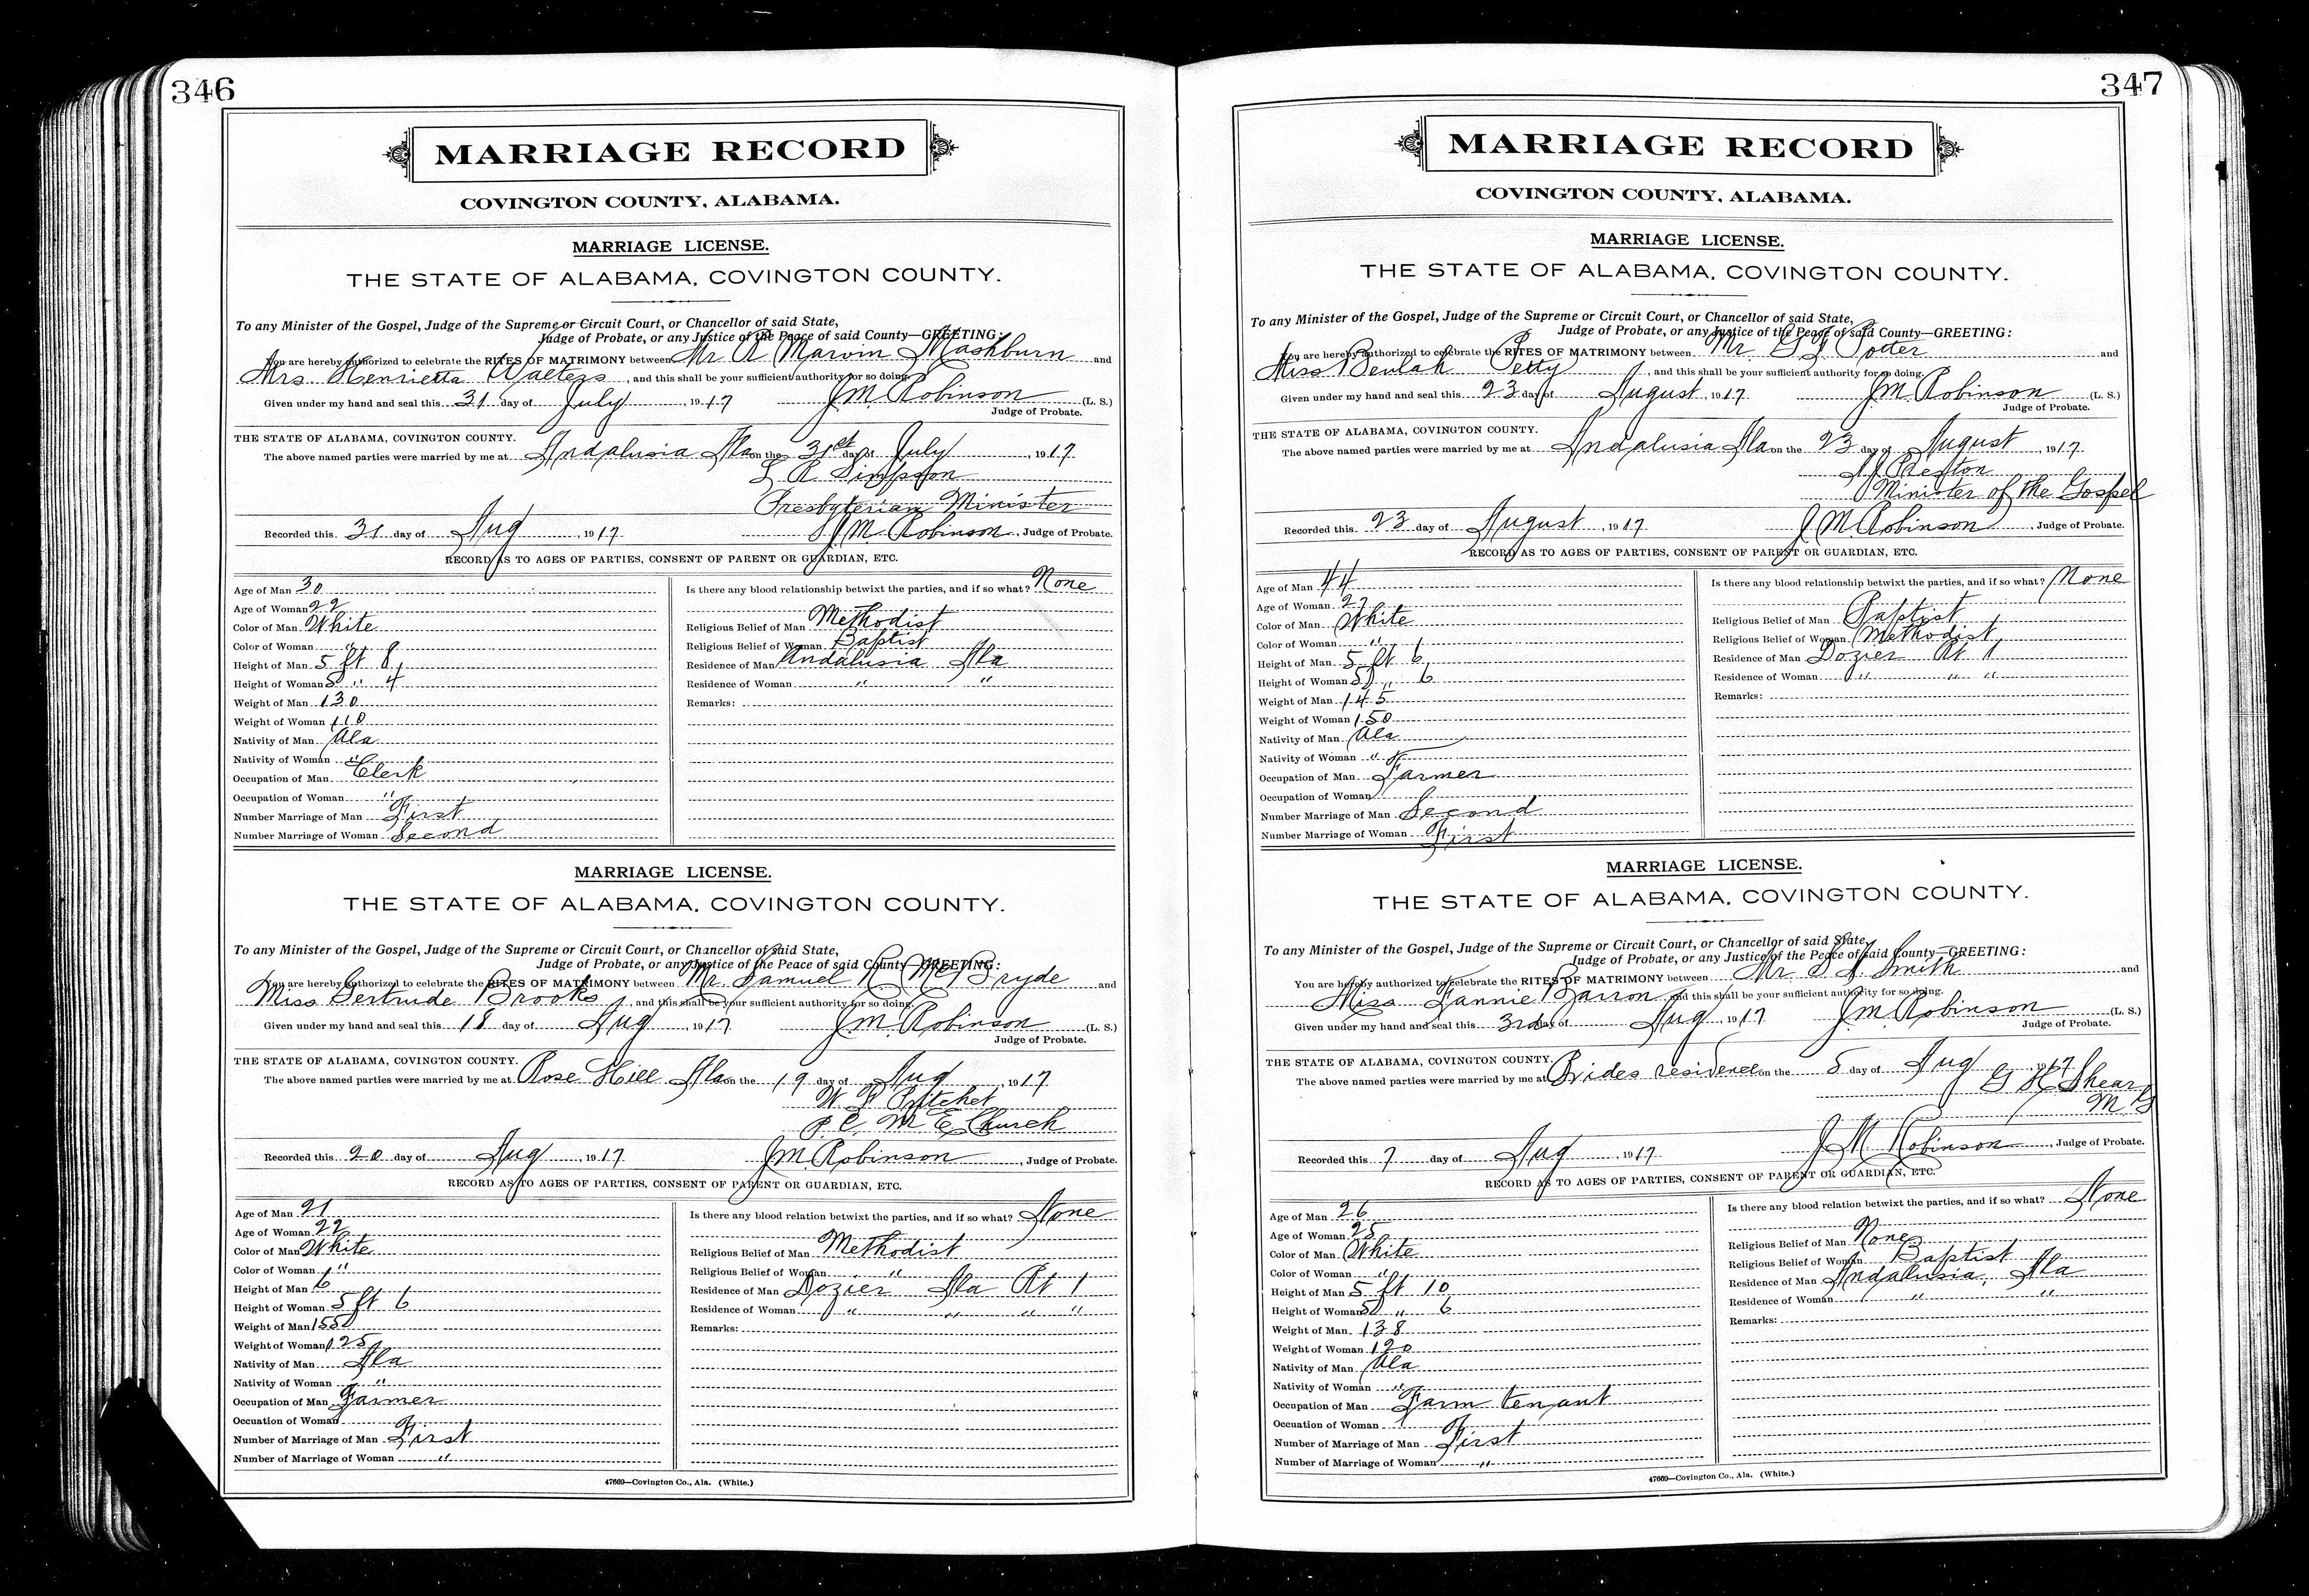 346
MARRIAGE RECORD
COVINGTON COUNTY, ALABAMA.
MARRIAGE LICENSE.
THE STATE OF ALABAMA, COVINGTON COUNTY.
To any Minister of the Gospel, Judge of the Supreme or Circuit Court, or Chancellor of said State,
Judge of Probate, or any Justice of the Peace of said County—GREETING:
You are hereby authorized to celebrate the RITES OF MATRIMONY between Mr R Marvin Mashburn and
Mrs Henrietta Walters, and this shall be your sufficient authority for so doing.
Given under my hand and seal this 31 day of July, 1917 J.M. Robinson (L. S.)
Judge of Probate.
THE STATE OF ALABAMA, COVINGTON COUNTY.
The above named parties were married by me at Andalusia Ala on the 31st day of July, 1917
L R Simpson
Presbyterian Minister
Recorded this 31 day of Aug, 1917 J M Robinson, Judge of Probate.
RECORD AS TO AGES OF PARTIES, CONSENT OF PARENT OR GUARDIAN, ETC.
Age of Man 30
Age of Woman 22
Color of Man White
Color of Woman "
Height of Man 5 ft 8
Height of Woman 5 " 4
Weight of Man 130
Weight of Woman 110
Nativity of Man Ala
Nativity of Woman "
Occupation of Man Clerk
Occupation of Woman "
Number Marriage of Man First
Number Marriage of Woman Second
Is there any blood relationship betwixt the parties, and if so what? None
Religious Belief of Man Methodist
Religious Belief of Woman Baptist
Residence of Man Andalusia Ala
Residence of Woman " "
Remarks:
MARRIAGE LICENSE.
THE STATE OF ALABAMA, COVINGTON COUNTY.
To any Minister of the Gospel, Judge of the Supreme or Circuit Court, or Chancellor of said State,
Judge of Probate, or any Justice of the Peace of said County—GREETING:
You are hereby authorized to celebrate the RITES OF MATRIMONY between Mr. Samuel R McBryde and
Miss Gertrude Brooks, and this shall be your sufficient authority for so doing.
Given under my hand and seal this 18 day of Aug, 1917 J.M. Robinson (L. S.)
Judge of Probate.
THE STATE OF ALABAMA, COVINGTON COUNTY.
The above named parties were married by me at Rose Hill Ala on the 19 day of Aug, 1917
W F Pritchet
P. C. M. E Church
Recorded this 20 day of Aug, 1917 J.M. Robinson, Judge of Probate.
RECORD AS TO AGES OF PARTIES, CONSENT OF PARENT OR GUARDIAN, ETC.
Age of Man 21
Age of Woman 22
Color of Man White
Color of Woman "
Height of Man 6
Height of Woman 5 ft 6
Weight of Man 155
Weight of Woman 125
Nativity of Man Ala
Nativity of Woman "
Occupation of Man Farmer
Occuation of Woman
Number of Marriage of Man First
Number of Marriage of Woman "
Is there any blood relation betwixt the parties, and if so what? None
Religious Belief of Man Methodist
Religious Belief of Woman "
Residence of Man Dozier Ala Rt 1
Residence of Woman " " " "
Remarks:
47669—Covington Co., Ala. (White.)
347
MARRIAGE RECORD
COVINGTON COUNTY, ALABAMA.
MARRIAGE LICENSE.
THE STATE OF ALABAMA, COVINGTON COUNTY.
To any Minister of the Gospel, Judge of the Supreme or Circuit Court, or Chancellor of said State,
Judge of Probate, or any Justice of the Peace of said County—GREETING:
You are hereby authorized to celebrate the RITES OF MATRIMONY between Mr Potter and
Miss Beulah Petty, and this shall be your sufficient authority for so doing.
Given under my hand and seal this 23 day of August, 1917 J.M. Robinson (L. S.)
Judge of Probate.
THE STATE OF ALABAMA, COVINGTON COUNTY.
The above named parties were married by me at Andalusia Ala on the 23 day of August, 1917
Preston
Minister of the Gospel
Recorded this 23 day of August, 1917 J M Robinson, Judge of Probate.
RECORD AS TO AGES OF PARTIES, CONSENT OF PARENT OR GUARDIAN, ETC.
Age of Man 44
Age of Woman 27
Color of Man White
Color of Woman "
Height of Man 5 ft 6
Height of Woman 5 " 6
Weight of Man 145
Weight of Woman 150
Nativity of Man Ala
Nativity of Woman "
Occupation of Man Farmer
Occupation of Woman
Number Marriage of Man Second
Number Marriage of Woman First
Is there any blood relationship betwixt the parties, and if so what? None
Religious Belief of Man Baptist
Religious Belief of Woman Methodist
Residence of Man Dozier Rt 1
Residence of Woman " " "
Remarks:
MARRIAGE LICENSE.
THE STATE OF ALABAMA, COVINGTON COUNTY.
To any Minister of the Gospel, Judge of the Supreme or Circuit Court, or Chancellor of said State,
Judge of Probate, or any Justice of the Peace of said County—GREETING:
You are hereby authorized to celebrate the RITES OF MATRIMONY between Mr Smith and
Miss Fannie Barron, and this shall be your sufficient authority for so doing.
Given under my hand and seal this 3rd day of Aug, 1917 J.M. Robinson (L. S.)
Judge of Probate.
THE STATE OF ALABAMA, COVINGTON COUNTY.
The above named parties were married by me at Brides residence on the 5 day of Aug, 1917
G H Shear
M G
Recorded this 7 day of Aug, 1917 J M Robinson, Judge of Probate.
RECORD AS TO AGES OF PARTIES, CONSENT OF PARENT OR GUARDIAN, ETC.
Age of Man 26
Age of Woman 25
Color of Man White
Color of Woman "
Height of Man 5 ft 10
Height of Woman 5 " 6
Weight of Man 138
Weight of Woman 120
Nativity of Man Ala
Nativity of Woman "
Occupation of Man Farm tenant
Occuation of Woman
Number of Marriage of Man First
Number of Marriage of Woman "
Is there any blood relation betwixt the parties, and if so what? None
Religious Belief of Man None
Religious Belief of Woman Baptist
Residence of Man Andalusia, Ala
Residence of Woman " "
Remarks:
47669—Covington Co., Ala. (White.)